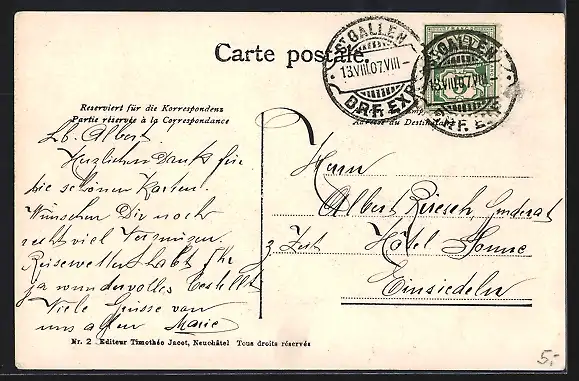 Carte postale.
ST. GALLEN
13.VIII.07.VIII-
BRF. EXP.
ST. GALLEN
13.VIII.07.VIII-
BRF. EXP.
Reserviert für die Korrespondenz
Partie réservée à la Correspondance
Adresse du Destinataire
Lb. Albert.
Herzlichen Dank für
die schönen Karten.
Wünschen Dir noch
recht viel Vergnügen.
Reisewetter habt Ihr
ja wundervolles bestellt
Viele Grüsse von
uns allen Marie
Herrn
Albert
z. Zeit Hôtel Sonne
Einsiedeln
Nr. 2 Editeur Timothée Jacot, Neuchâtel Tous droits réservés
5.-